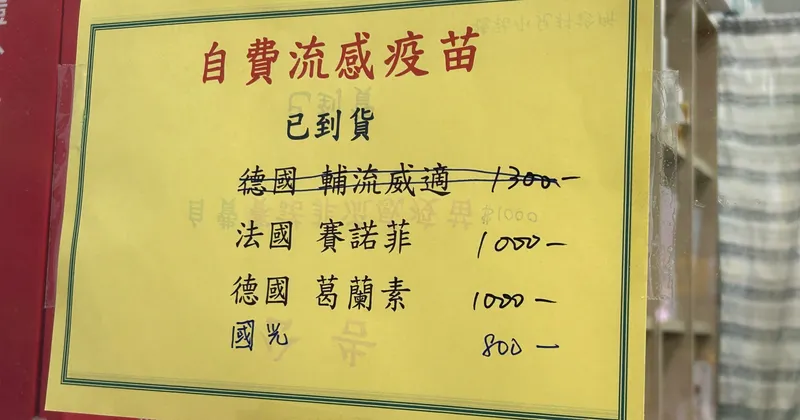 自費流感疫苗
已到貨
德國 輔流威適 1300-
法國 賽諾菲 1000-
德國 葛蘭素 1000-
國光 800-